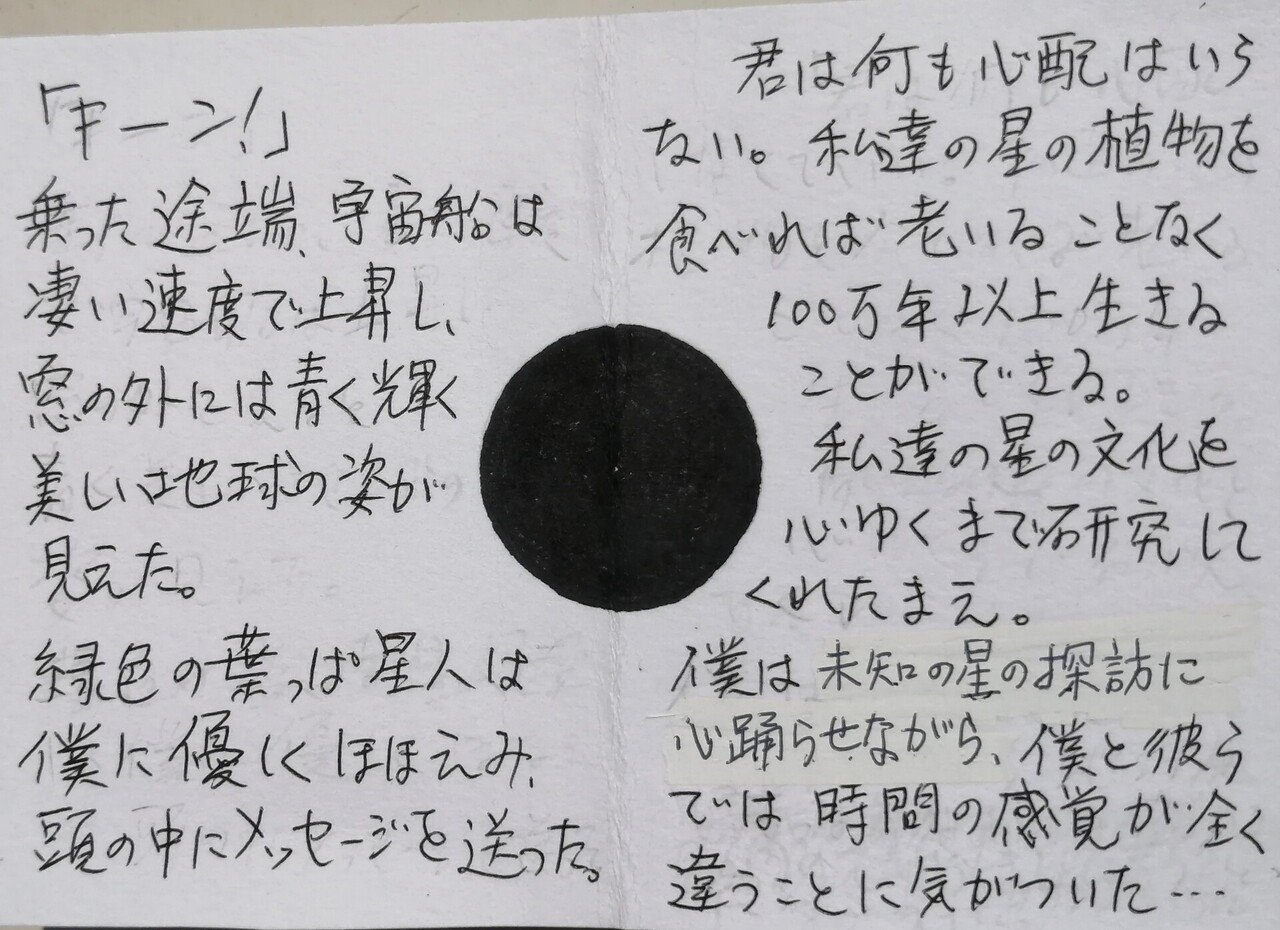 「キーン!」
乗った途端、宇宙船は
凄い速度で上昇し、
窓の外には青く輝く
美しい地球の姿が
見えた。
緑色の葉っぱ星人は
僕に優しくほほえみ、
頭の中にメッセージを送った。
君は何も心配はいら
ない。私達の星の植物を
食べれば老いることなく
100万年以上生きる
ことができる。
私達の星の文化を
心ゆくまで研究して
くれたまえ。
僕は未知の星の探訪に
心踊らせながら、僕と彼う
では時間の感覚が全く
違うことに気がついた…